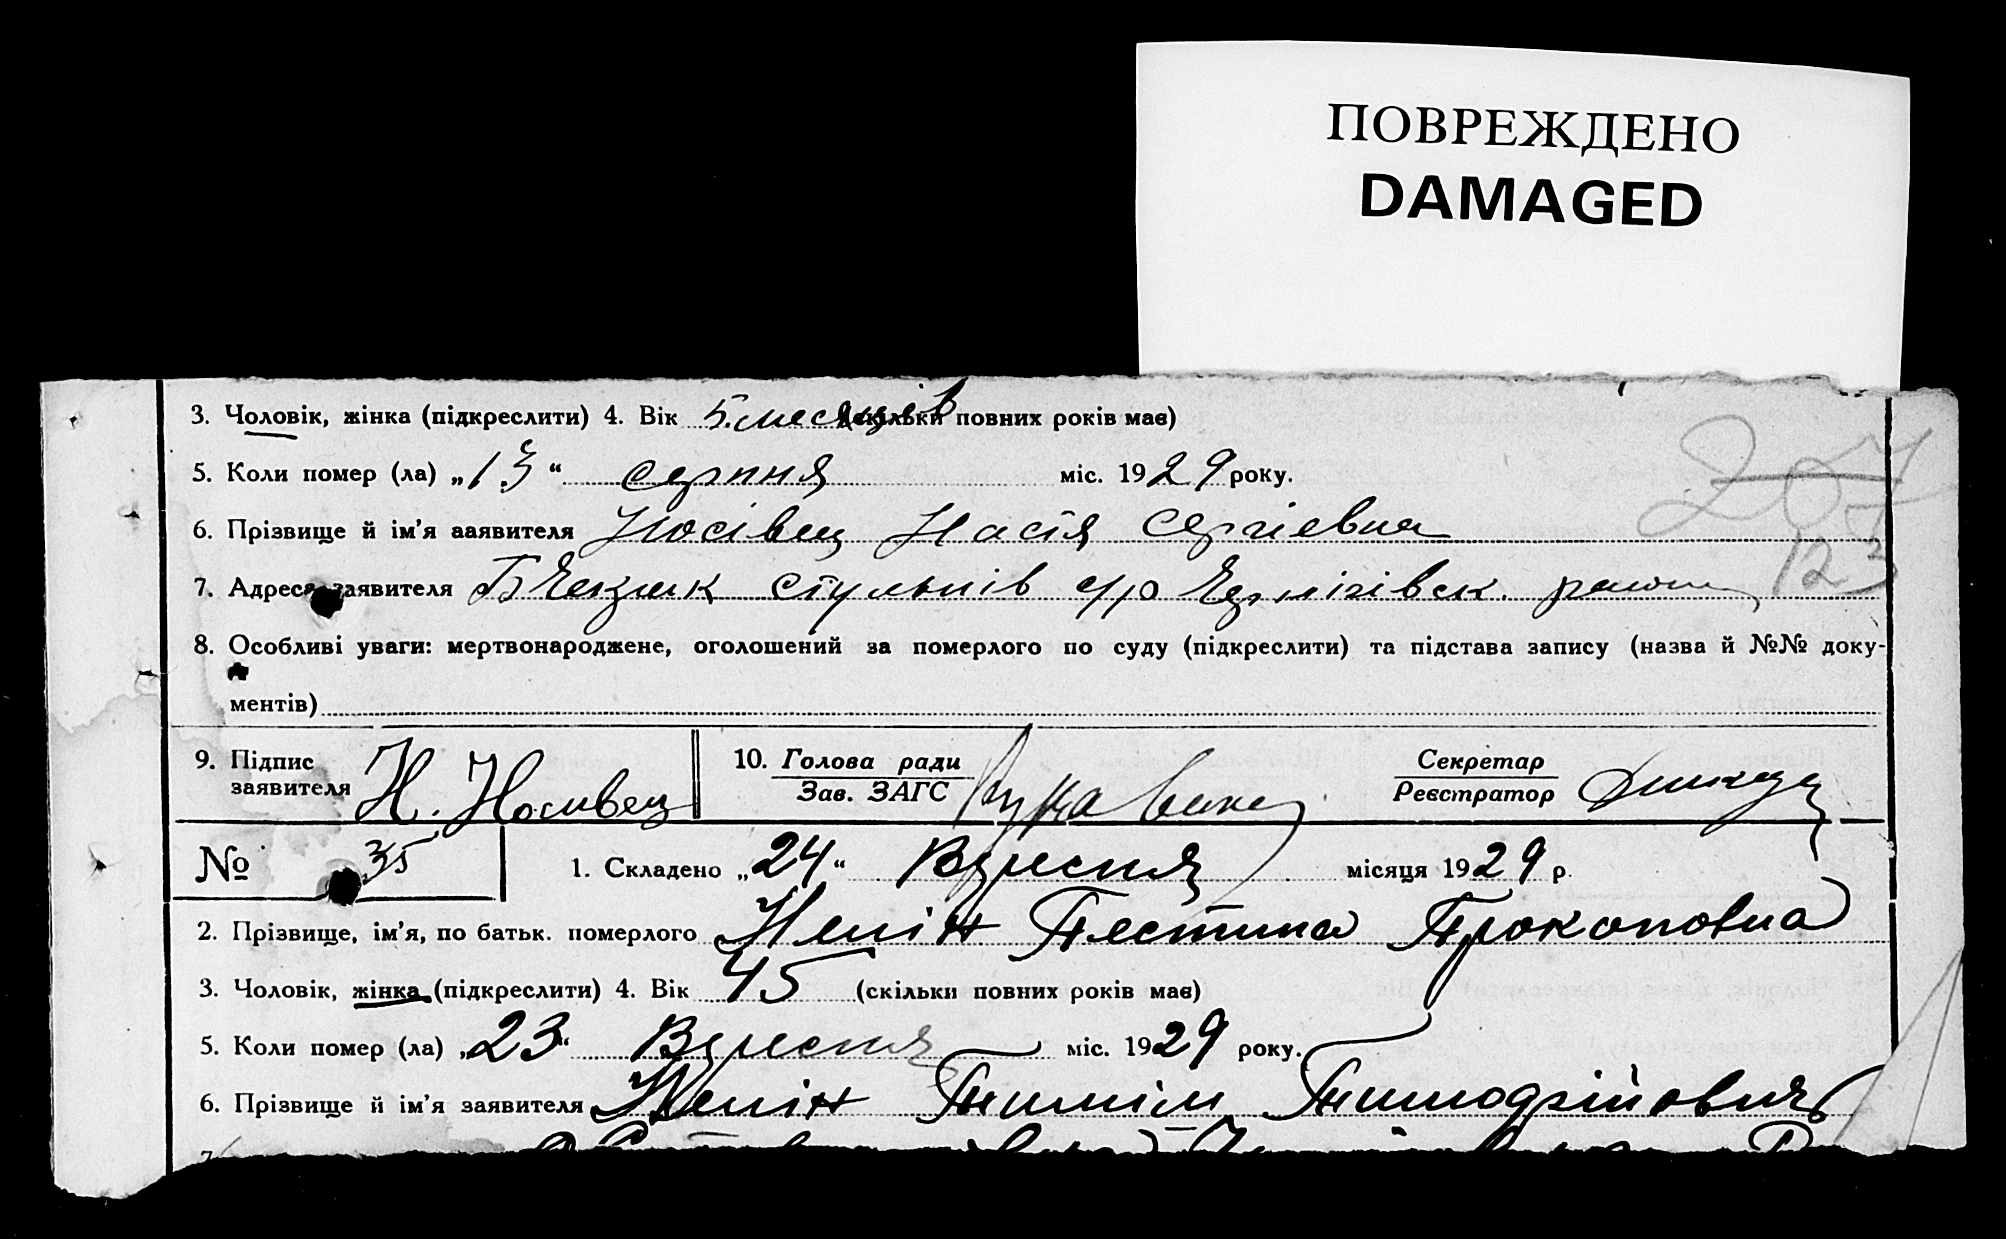 ПОВРЕЖДЕНО
DAMAGED
3. Чоловік, жінка (підкреслити) 4. Вік 5. месяців (скільки повних років має)
5. Коли помер (ла) „13“ серпня міс. 1929 року.
6. Прізвище й ім'я заявителя Носівец Настя Сергіевна
7. Адреса заявителя стульнів с/р район
8. Особливі уваги: мертвонароджене, оголошений за померлого по суду (підкреслити) та підстава запису (назва й №№ доку-
ментів)
9. Підпис заявителя Н. Носивец 10. Голова ради Зав. ЗАГС Секретар Реєстратор
№ 35 1. Складено „24“ Вересня місяця 1929 р.
2. Прізвище, ім'я, по батьк. померлого Прокоповна
3. Чоловік, жінка (підкреслити) 4. Вік 45 (скільки повних років має)
5. Коли помер (ла) „23“ Вересня міс. 1929 року.
6. Прізвище й ім'я заявителя
7.
123